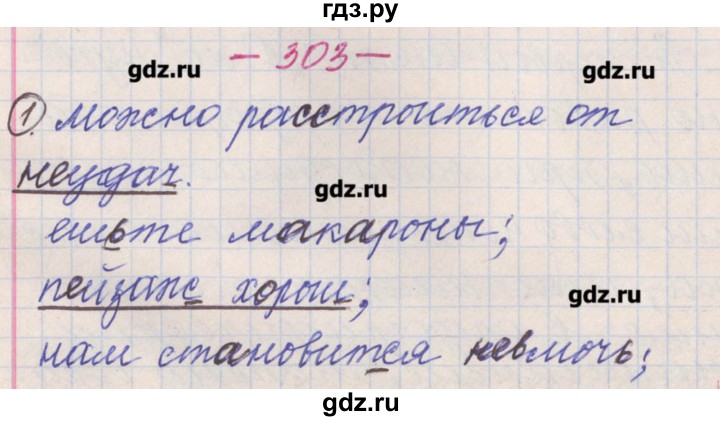 гдз.ру
— 303 —
gdz.ru gdz.ru
1. можно расстроиться от
неудач.
gdz.ru
ешьте макароны;
пейзаж хорош;
gdz.ru
нам становится невмочь;
gdz.ru